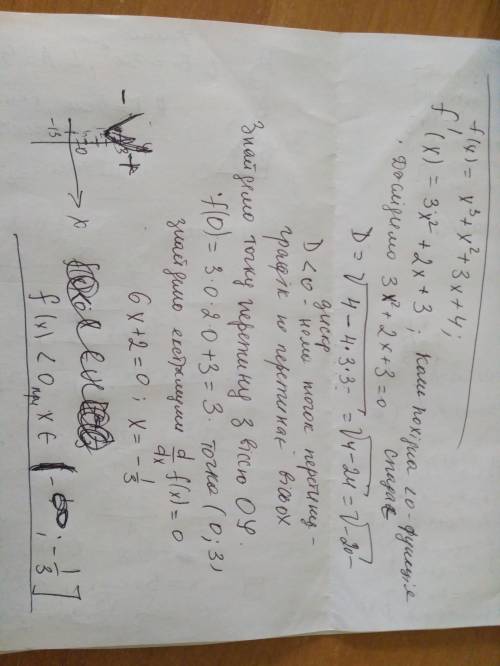 f(x) = x³ + x² + 3x + 4;
f'(x) = 3x² + 2x + 3; Коли похідна <0 - функція спадає
Дослідемо 3x² + 2x + 3 = 0
D = √4 - 4·3·3 = √4-24 = √-20
D < 0 - нема точок перетину -
графік не перетинає вісь ox
Знайдемо точку перетину з віссю OY.
f(0) = 3·0·20+3 = 3. точка (0; 3)
знайдемо екстемуми d/dx f(x) = 0
6x + 2 = 0; x = -1/3
x
f(x) < 0 при x ∈ -∞; -1/3]